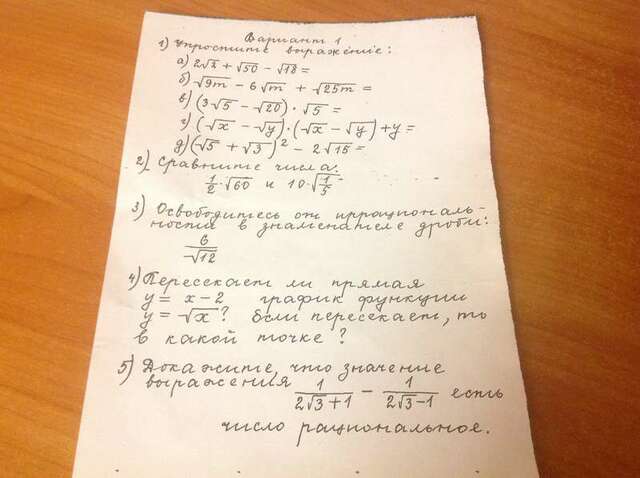 Вариант 1
1) Упростите выражение:
а) 2√2 + √50 - √18 =
б) √9m - 6√m + √25m =
в) (3√5 - √20) · √5 =
г) (√x - √y) · (√x - √y) + y =
д) (√5 + √3)² - 2√15 =
2) Сравните числа:
1/2 · √60 и 10 · √1/5
3) Освободитесь от иррациональ-
ности в знаменателе дроби:
6/√12
4) Пересекает ли прямая
y = x - 2 график функции
y = √x? Если пересекает, то
в какой точке?
5) Докажите, что значение
выражения 1/(2√3 + 1) - 1/(2√3 - 1) есть
число рациональное.